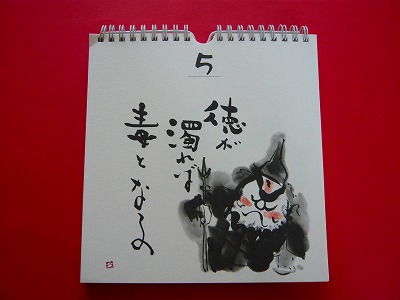 5
徳が
濁れば
毒となるの